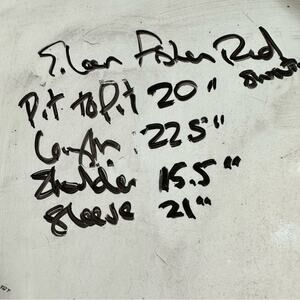 Eileen Fisher Red
sweater
Pit to Pit 20"
Length 22.5"
Shoulder 15.5"
Sleeve 21"